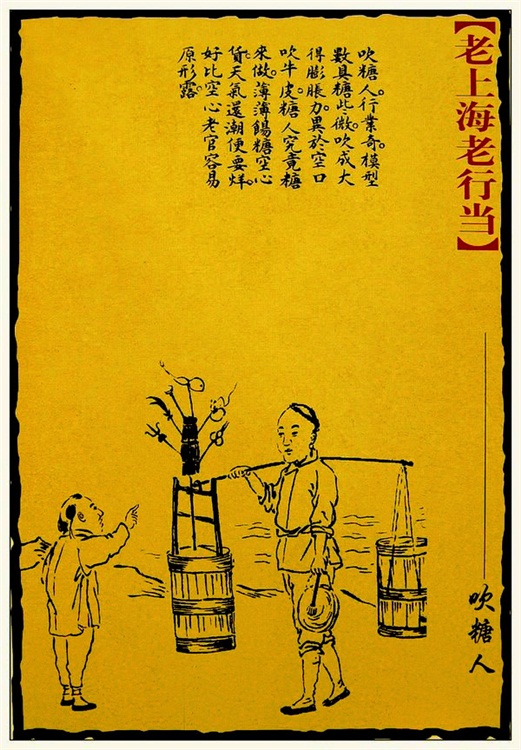 【老上海老行当】
吹糖人
吹糖人行業奇。模型
數具糖些微。吹成大
得膨脹力。異於空口
吹牛皮。糖人究竟糖
來做。薄薄餳糖空心
貨。天氣還潮便要烊。
好比空心老官容易
原形露。